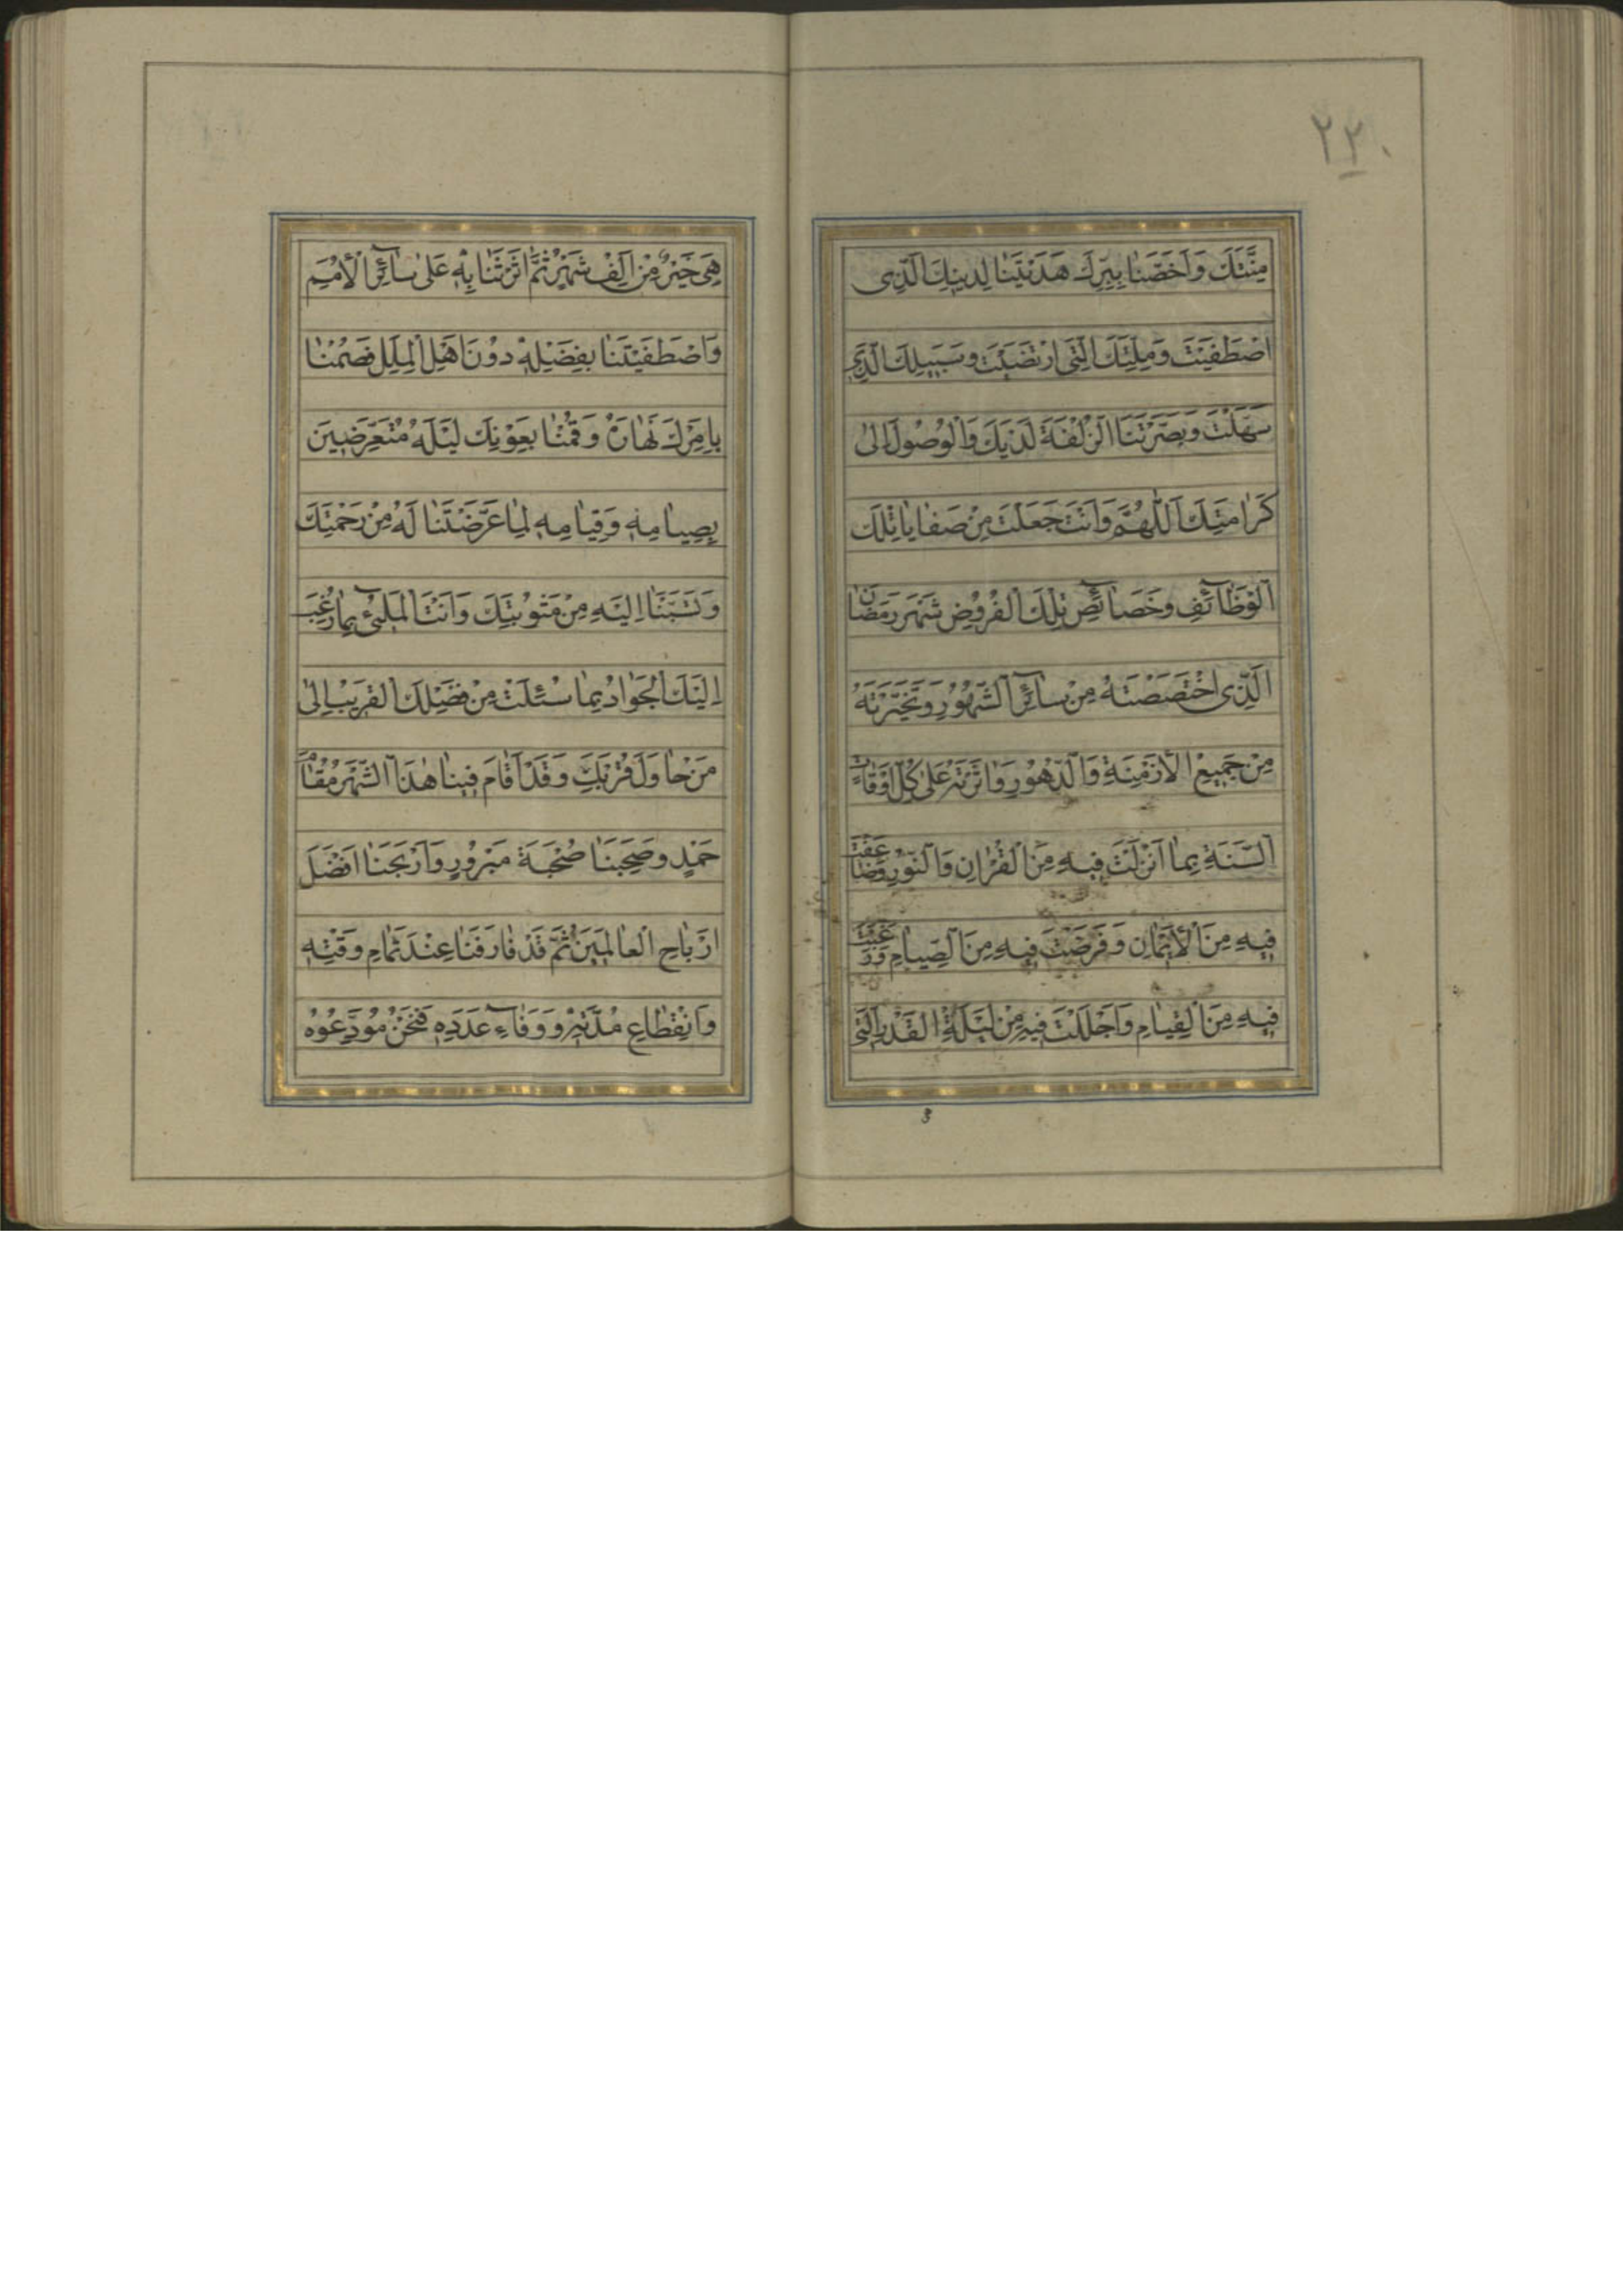 ۲۲۰
مِنَّتَكَ وَاَخَصَّنَا بِبِرِّكَ هَدَيْتَنَا لِدِينِكَ الَّذِى
اصْطَفَيْتَ وَمِلَّتِكَ الَّتِى ارْتَضَيْتَ وَسَبِيلِكَ الَّذِى
سَهَّلْتَ وَبَصَّرْتَنَا الزُّلْفَةَ لَدَيْكَ وَالْوُصُولَ اِلىٰ
كَرَامَتِكَ اَللّٰهُمَّ وَاَنْتَ جَعَلْتَ مِنْ صَفَايَا تِلْكَ
الْوَظَآئِفِ وَخَصَآئِصِ تِلْكَ الْفُرُوضِ شَهْرَ رَمَضَانَ
الَّذِى اخْتَصَصْتَهُ مِنْ سَآئِرِ الشُّهُورِ وَتَخَيَّرْتَهُ
مِنْ جَمِيعِ الْاَزْمِنَةِ وَالدُّهُورِ وَاٰثَرْتَهُ عَلىٰ كُلِّ اَوْقَاتِ
السَّنَةِ بِمَا اَنْزَلْتَ فِيهِ مِنَ الْقُرْاٰنِ وَالنُّورِ وَضَاعَفْتَ
فِيهِ مِنَ الْاِيْمَانِ وَفَرَضْتَ فِيهِ مِنَ الصِّيَامِ وَرَغَّبْتَ
فِيهِ مِنَ الْقِيَامِ وَاَجْلَلْتَ فِيهِ مِنْ لَيْلَةِ الْقَدْرِ الَّتِى
هِىَ خَيْرٌ مِنْ اَلْفِ شَهْرٍ ثُمَّ اٰثَرْتَنَا بِهِ عَلىٰ سَآئِرِ الْاُمَمِ
وَاصْطَفَيْتَنَا بِفَضْلِهِ دُونَ اَهْلِ الْمِلَلِ فَصُمْنَا
بِاَمْرِكَ نَهَارَهُ وَقُمْنَا بِعَوْنِكَ لَيْلَهُ مُتَعَرِّضِينَ
بِصِيَامِهِ وَقِيَامِهِ لِمَا عَرَّضْتَنَا لَهُ مِنْ رَحْمَتِكَ
وَتَسَبَّبْنَا اِلَيْهِ مِنْ مَثُوبَتِكَ وَاَنْتَ الْمَلِىْٓءُ بِمَا رُغِبَ
اِلَيْكَ الْجَوَادُ بِمَا سُئِلْتَ مِنْ فَضْلِكَ الْقَرِيبُ اِلىٰ
مَنْ حَاوَلَ قُرْبَكَ وَقَدْ اَقَامَ فِينَا هٰذَا الشَّهْرُ مُقَامَ
حَمْدٍ وَصَحِبَنَا صُحْبَةَ مَبْرُورٍ وَاَرْبَحَنَا اَفْضَلَ
اَرْبَاحِ الْعَالَمِينَ ثُمَّ قَدْ فَارَقَنَا عِنْدَ تَمَامِ وَقْتِهِ
وَانْقِطَاعِ مُدَّتِهِ وَوَفَآءِ عَدَدِهِ فَنَحْنُ مُوَدِّعُوهُ